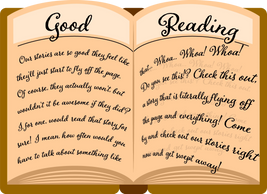 Good
Our stories are so good they feel like
they'll just start to fly off the page.
Of course, they actually won't, but
wouldn't it be awesome if they did?
I for one, would read that story for
sure! I mean, how often would you
have to talk about something like
Reading
that... Whoa... Whoa! Whoa!
Do you see this!? Check this out,
a story that is literally flying off
the page and everything! Come
by and check out our stories right
now and get swept away!